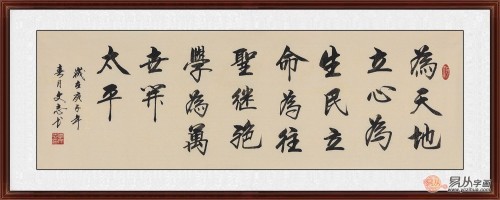 為天地
立心為
生民立
命為往
聖继绝
學為萬
世開
太平
歲在庚子年
春月文忠书
易从字画